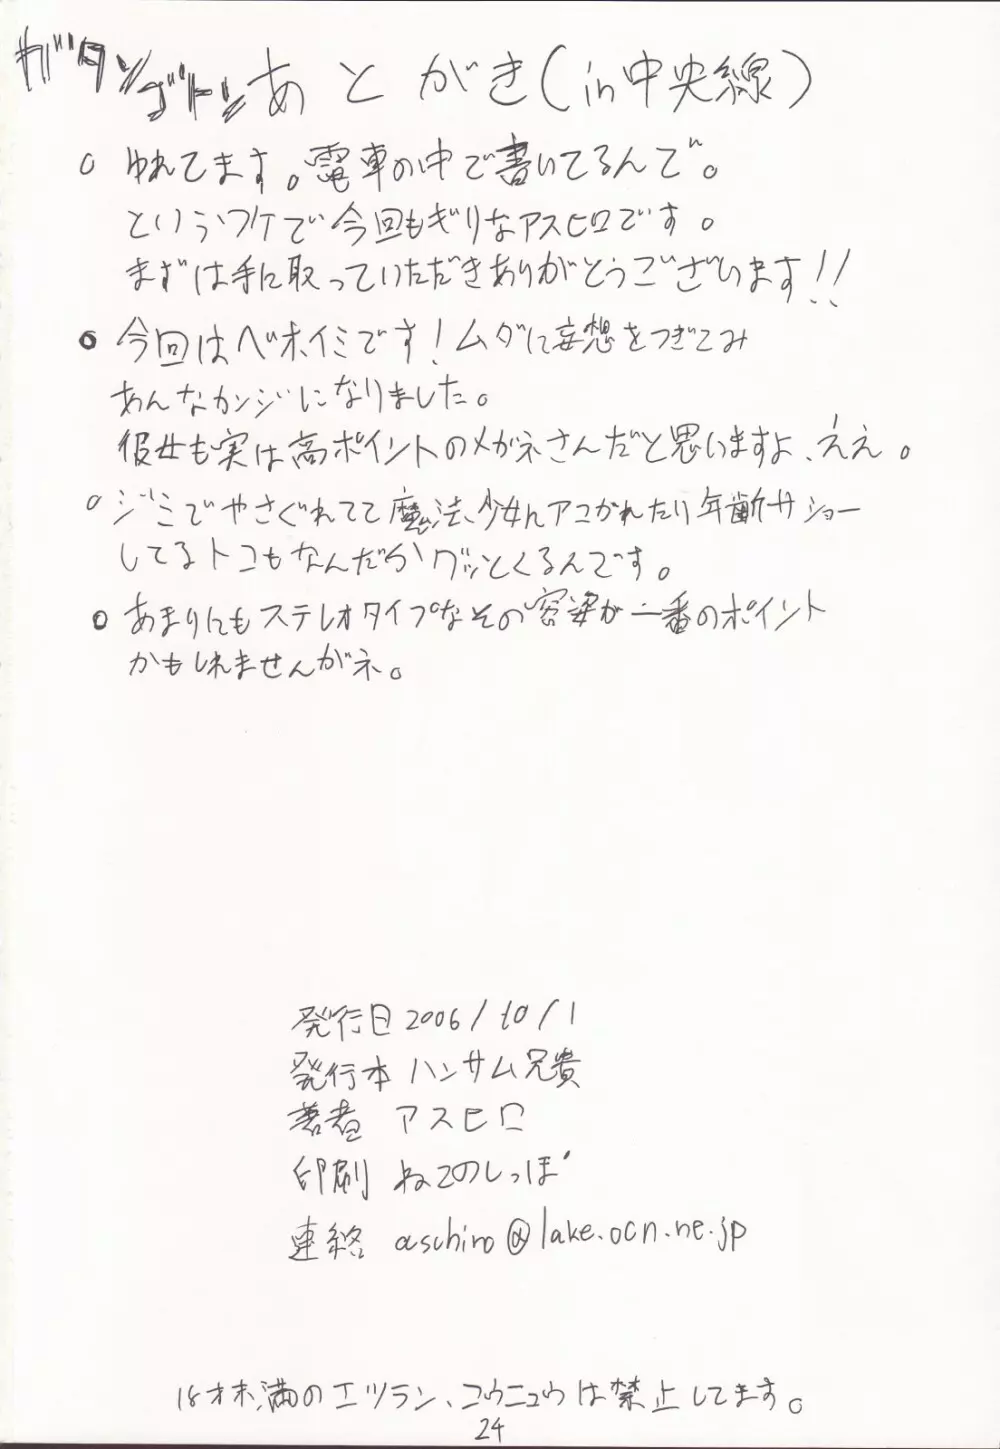 ガタンゴトン あとがき(in中央線)
○ ゆれてます。電車の中で書いてるんで。
というワケで今回もギリなアスヒロです。
まずは手に取っていただきありがとうございます!!
○ 今回はベホイミです!ムダに妄想をつぎこみ
あんなカンジになりました。
彼女も実は高ポイントのメガネさんだと思いますよ、ええ。
○ ジミでやさぐれてて魔法少女にアコがれたり年齢サショー
してるトコもなんだかグッとくるんです。
○ あまりにもステレオタイプなその容姿が一番のポイント
かもしれませんがネ。
発行日 2006/10/1
発行本 ハンサム兄貴
著者 アスヒロ
印刷 ねこのしっぽ
連絡 aschiro@lake.ocn.ne.jp
18才未満のエツラン、コウニュウは禁止してます。
24